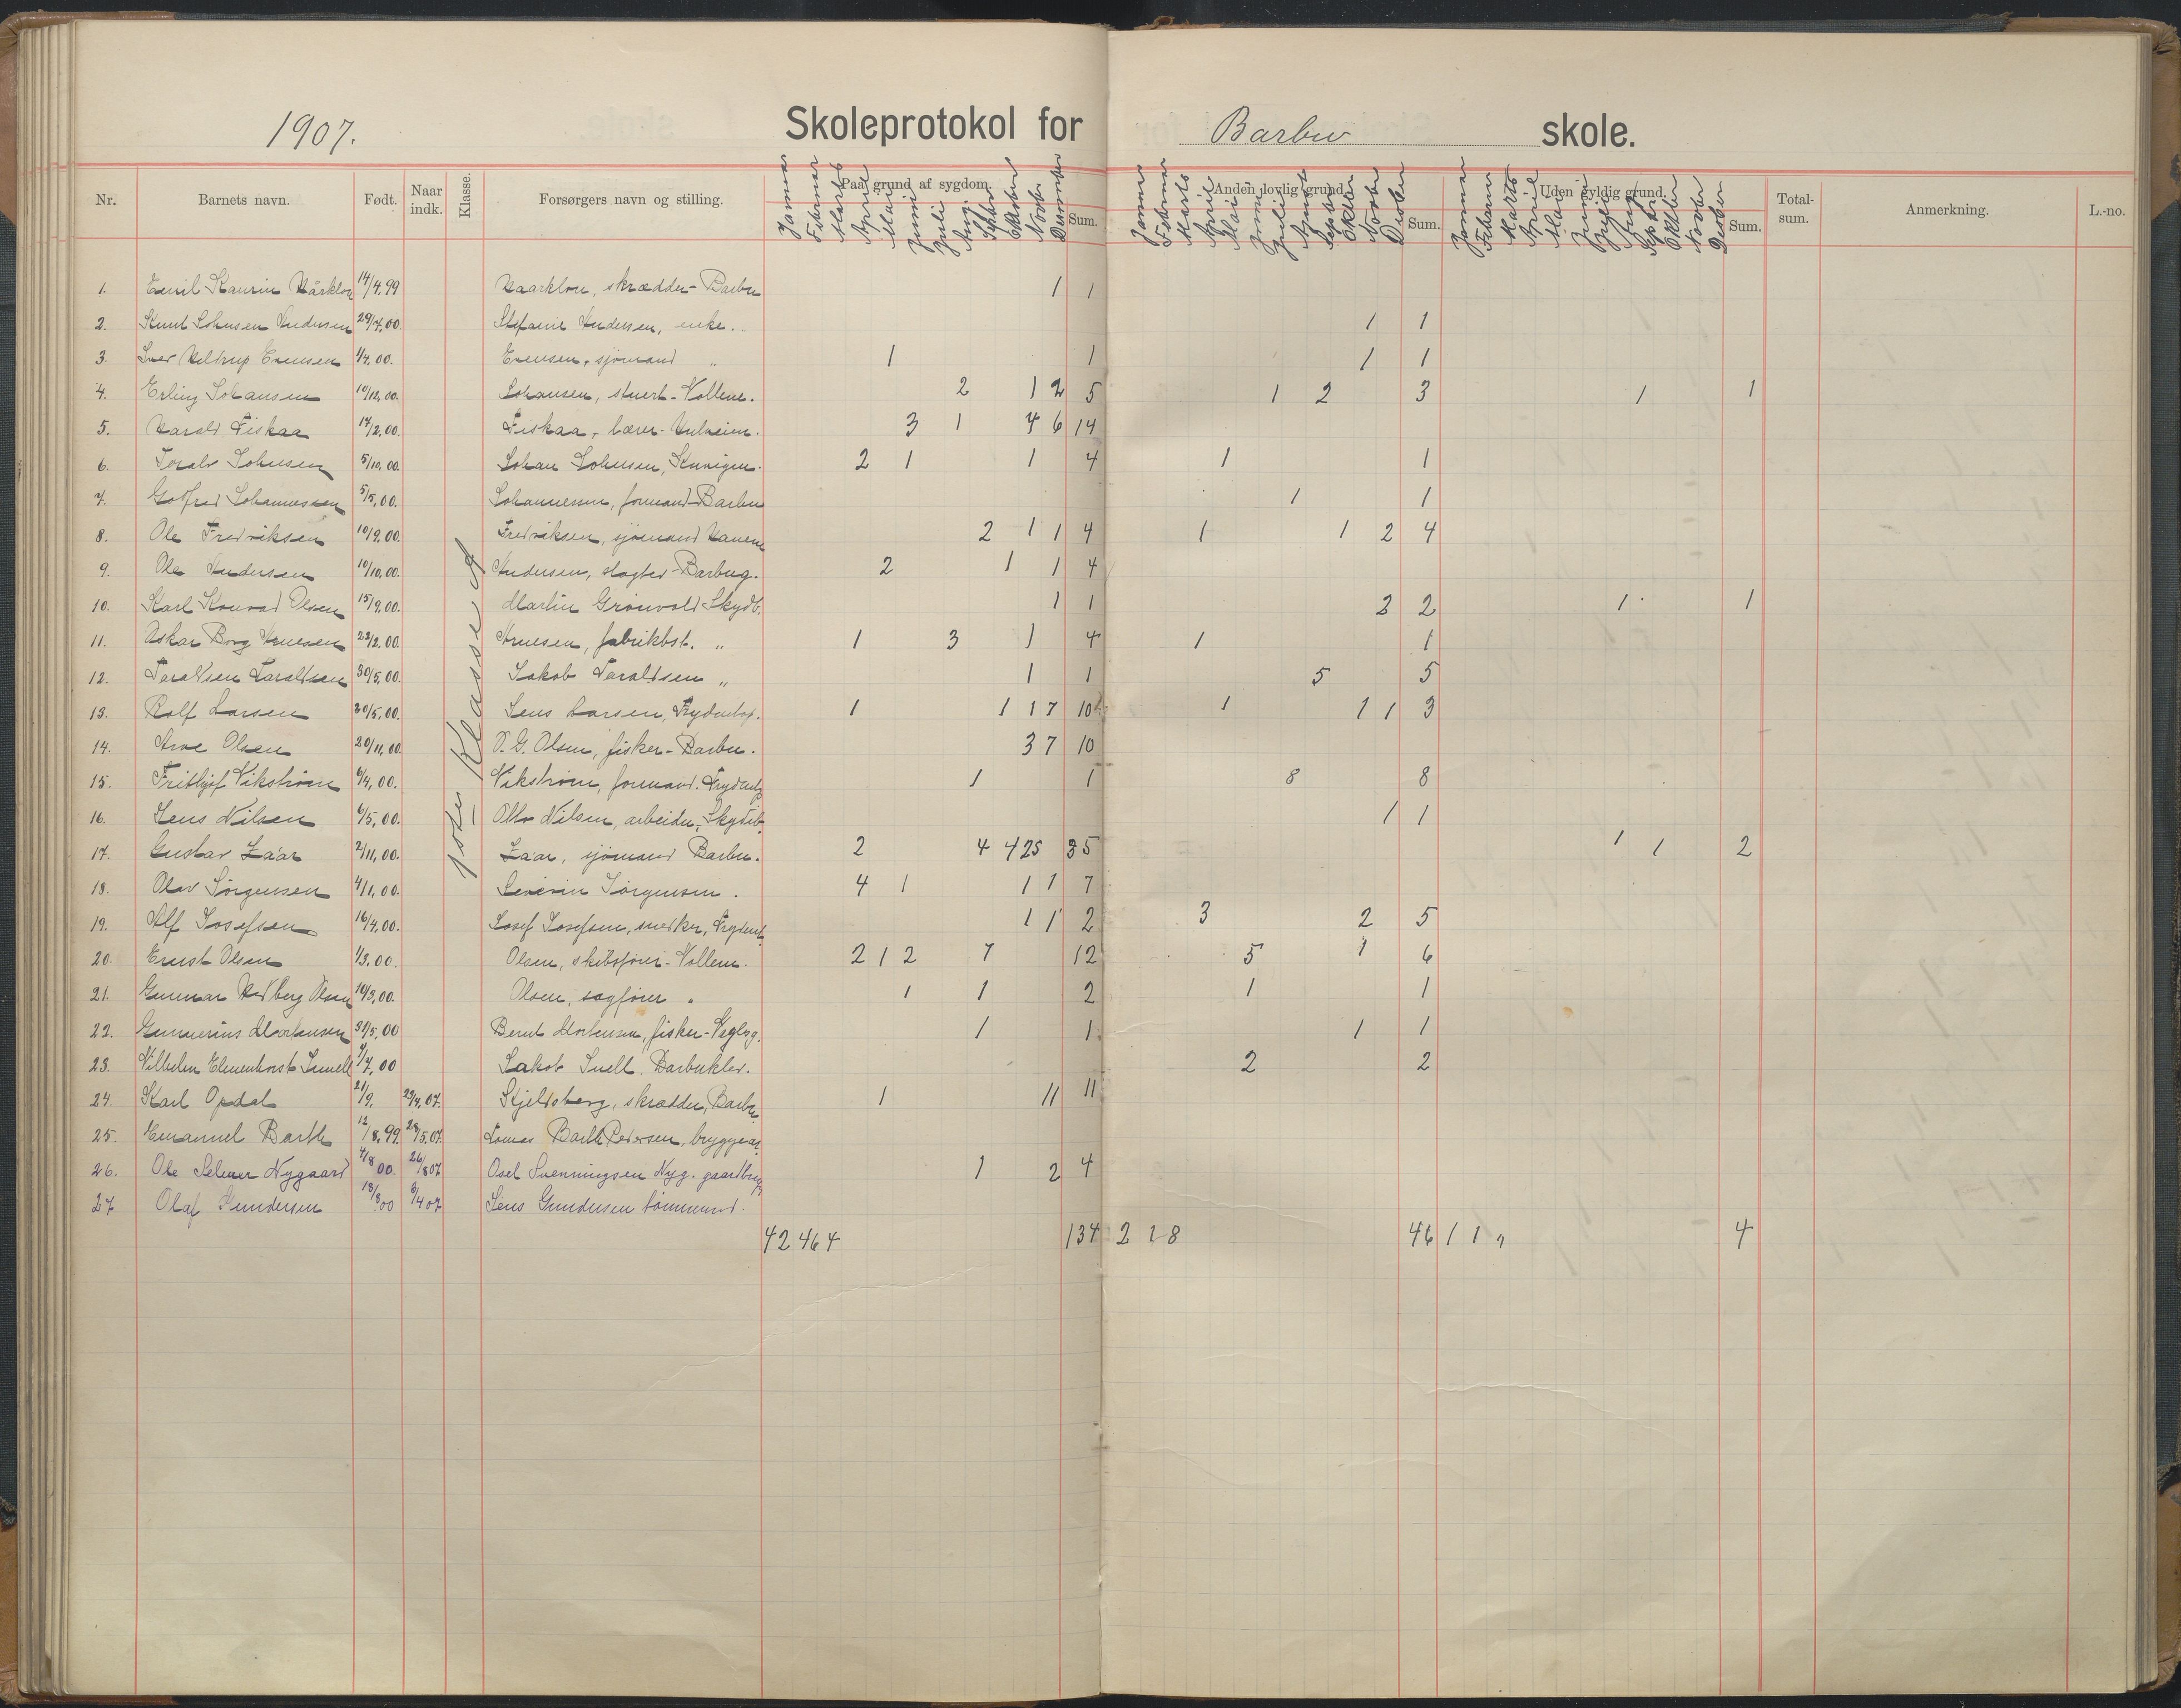 1907. Skoleprotokol for Barbu skole.
Nr. Barnets navn. Født. Naar indk. Klasse. Forsørgers navn og stilling. Paa grund af sygdom. Sum. Anden lovlig grund. Sum. Uden gyldig grund. Sum. Total-sum. Anmerkning. L.-no.
Januar Februar Marts April Mai Juni Juli Aug. Septbr Oktober Novbr December
1ste Klasse
1. Emil Kaurin 14/4.99 skrædder - Barbu 1 1
2. Knut Johnsen Andersen 29/7.00. Stefanie Andersen, enke. 1 1
3. Iver Evensen 1/4.00. Evensen, sjømand " 1 1 1 1
4. Erling Johansen 10/12.00. Johansen, stuert - Vollene. 2 1 2 5 1 2 3 1 1
5. Harald Fiskaa 17/2.00. Fiskaa, lærer - 3 1 4 6 14
6. Toralv Johnsen 5/10.00. Johan Johnsen, 2 1 1 4 1 1
7. Gotfred Johannessen 5/5.00. Johannessen, formand - Barbu 1 1
8. Ole Fredriksen 10/9.00. Fredriksen, sjømand 2 1 1 4 1 1 2 4
9. Ole Andersen 10/10.00. Andersen, slagter - Barbug. 2 1 1 4
10. Karl Konrad Olsen 15/9.00. Martin Grönvold - Skydb. 1 1 2 2 1 1
11. Oskar Borg Arnesen 22/2.00. Arnesen, fabrikbst. " 1 3 1 4 1 1
12. Taraldsen 30/5.00. Jakob Taraldsen " 1 1 5 5
13. Rolf Larsen 20/5.00. Jens Larsen, 1 1 1 7 10 1 1 1 3
14. Arne Olsen 20/11.00. O. G. Olsen, fisker - Barbu. 3 7 10
15. Frithjof Vikstrøm 6/4.00. Vikstrøm, formand. 1 1 8 8
16. Jens Nilsen 6/5.00. Otto Nilsen, arbeider, 1 1
17. Gustav Zaar 2/11.00. Zaar, sjømand Barbu. 2 4 4 25 35 1 1 2
18. Olav Jörgensen 4/1.00. Severin Jörgensen. 4 1 1 1 7
19. Alf Josefsen 16/4.00. Josef Josefsen, snedker, 1 1 2 3 2 5
20. Ernst Olsen 1/3.00. Olsen, skibsfører - Vollene. 2 1 2 7 12 5 1 6
21. Gunnar Hedberg Olsen 14/3.00. Olsen, sagfører " 1 1 2 1 1
22. Gunnerius Mortensen 31/5.00 Bernt Mortensen, fisker - 1 1 1 1
23. Vilhelm 9/7.00 Jakob Snell, Barbuklev. 2 2
24. Karl Opdal 21/9. 29/4.07. Kjeldsberg, skrædder, Barbu 1 11 11
25. Emanuel Barth 12/8.99. 28/5.07. Tomas Barth Pedersen, bryggeriar.
26. Ole Selmer Nygaard 4/8 00. 26/8 07 Osel Svenningsen Nyg. gaardbrug. 1 2 4
27 Olaf Gundersen 18/8 00 8/4 07 Jens Gundersen tømmermd.
42 46 4 134 2 1 8 46 1 1 " 4